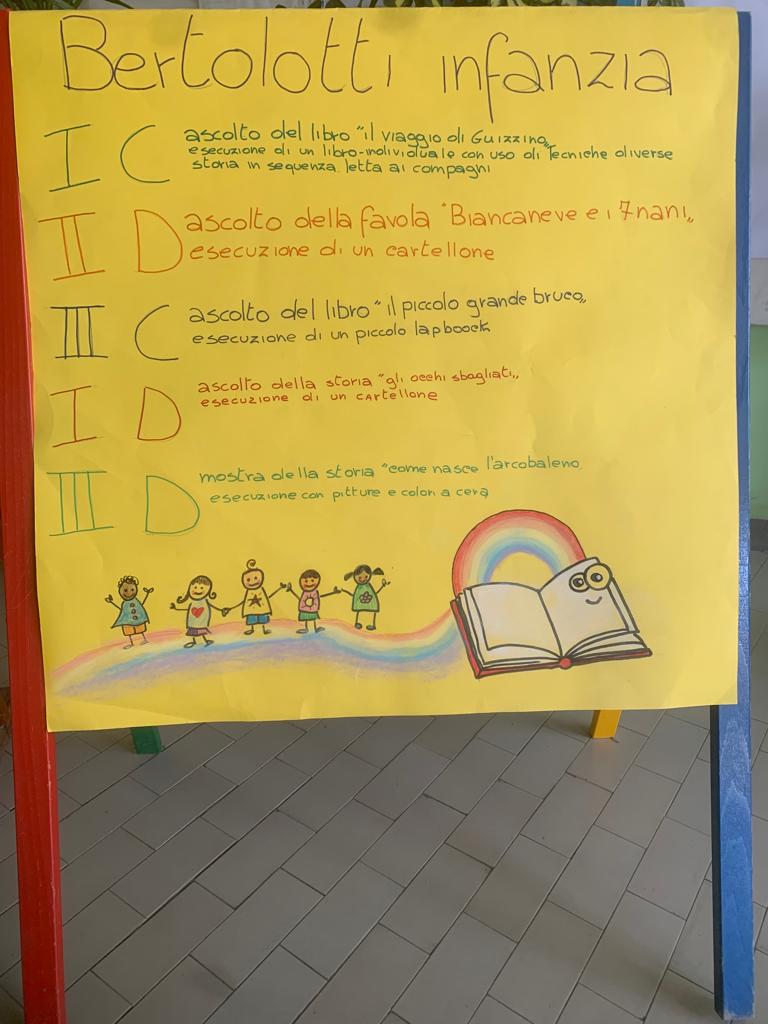 Bertolotti infanzia
I C ascolto del libro "il viaggio di Guizzino„
esecuzione di un libro-individuale con uso di tecniche diverse
storia in sequenza letta ai compagni
II D ascolto della favola "Biancaneve e i 7 nani„
esecuzione di un cartellone
III C ascolto del libro "il piccolo grande bruco„
esecuzione di un piccolo lapboock
I D ascolto della storia "gli occhi sbagliati„
esecuzione di un cartellone
III D mostra della storia "come nasce l'arcobaleno
esecuzione con pitture e colori a cera